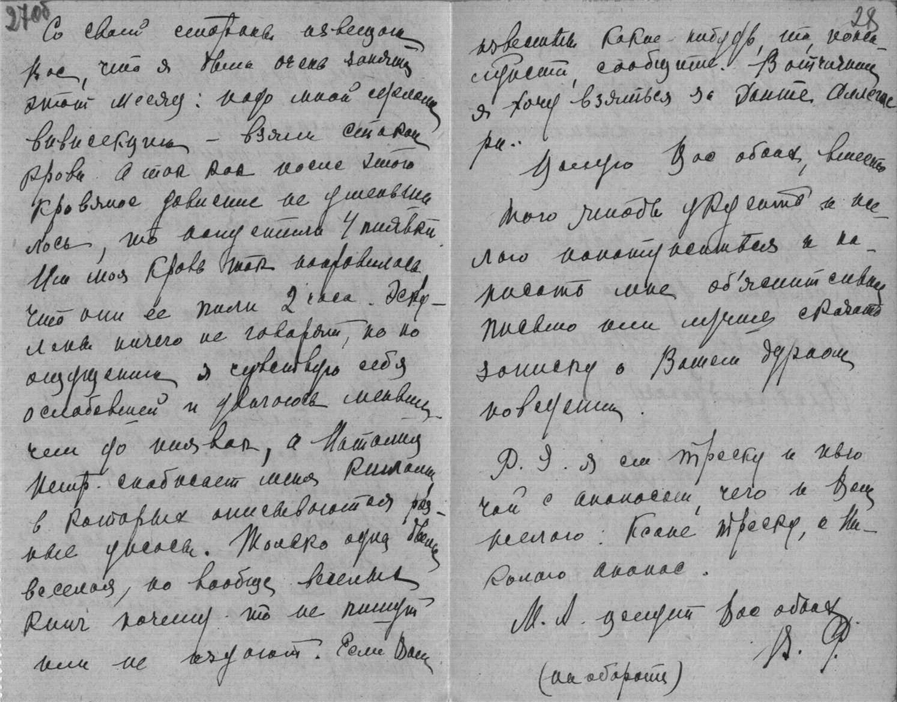 27об
Со своей стороны извещаю
Вас, что я была очень занята
этот месяц: надо мной сделали
вивисекцию – взяли стакан
крови. А так как после этого
кровяное давление не уменьши
лось, то напустили 4 пиявки.
Им моя кровь так понравилась
что они ее пили 2 часа. Эску-
лапы ничего не говорят, но по
ощущению я чувствую себя
ослабевшей и двигаюсь меньше,
чем до пиявок, а Наталия
Петр. снабжает меня книгами
в которых описываются раз-
ные ужасы. Только одна была
веселая, но вообще веселых
книг почему-то не пишут
или не издают. Если Вам
28
известны какие-нибудь, то, пожа-
луйста, сообщите. В отчаянии
я хочу взяться за Данте Алигие
ри.
Целую Вас обоих, вместо
того чтобы
и на-
писать мне об'яснительное
письмо или лучше сказать
записку о Вашем дурном
поведении.
Р.S. я ем треску и пью
чай с ананасом, чего и Вам
желаю: Ксане треску, а Ни-
колаю ананас.
М. А. целует Вас обоих
В. Ф.
(на обороте)